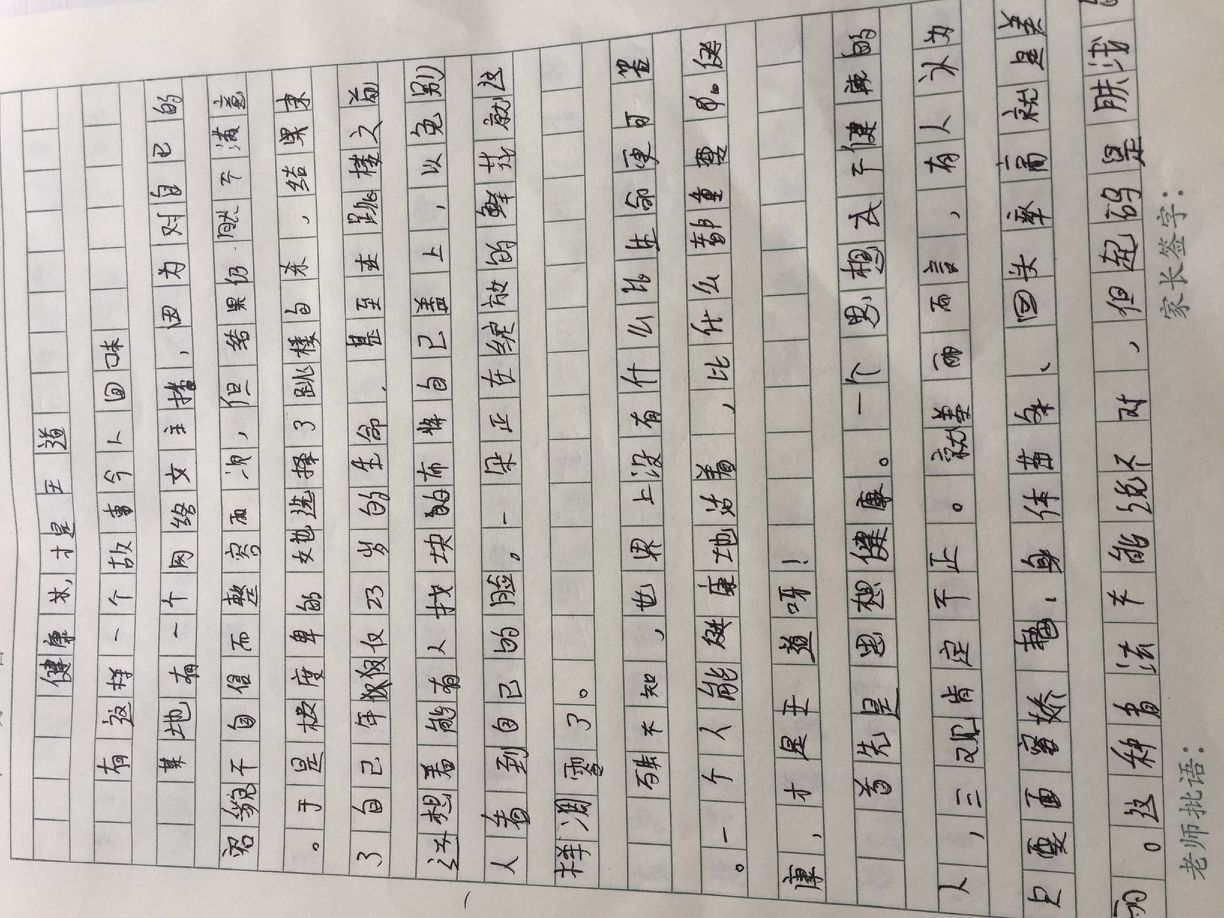 健康美,才是王道
有这样一个故事令人回味
某地有一个网络女主播,因为对自己的
容貌不自信而整容两次,但结果仍然不满意
。于是极度卑的她选择了跳楼自杀,结果束
了自己年仅仅23岁的生命,甚至在跳楼之前
还想着能有人找块的布将自己盖上,以免别
人看到自己的脸。一朵正在绽放的鲜花就这
样凋零了。
殊不知,世界上没有什么比生命更可贵
。一个人能健康地活着,比什么都重要的。健
康,才是王道呀!
首先是思想健康。一个思想不健康的
人,三观肯定不正。就美丽而言,有人认为
只要面容娇艳、身体苗条、回头率高就是美
丽。这种看法不能说不对,但起码是肤浅的
老师批语:
家长签字: